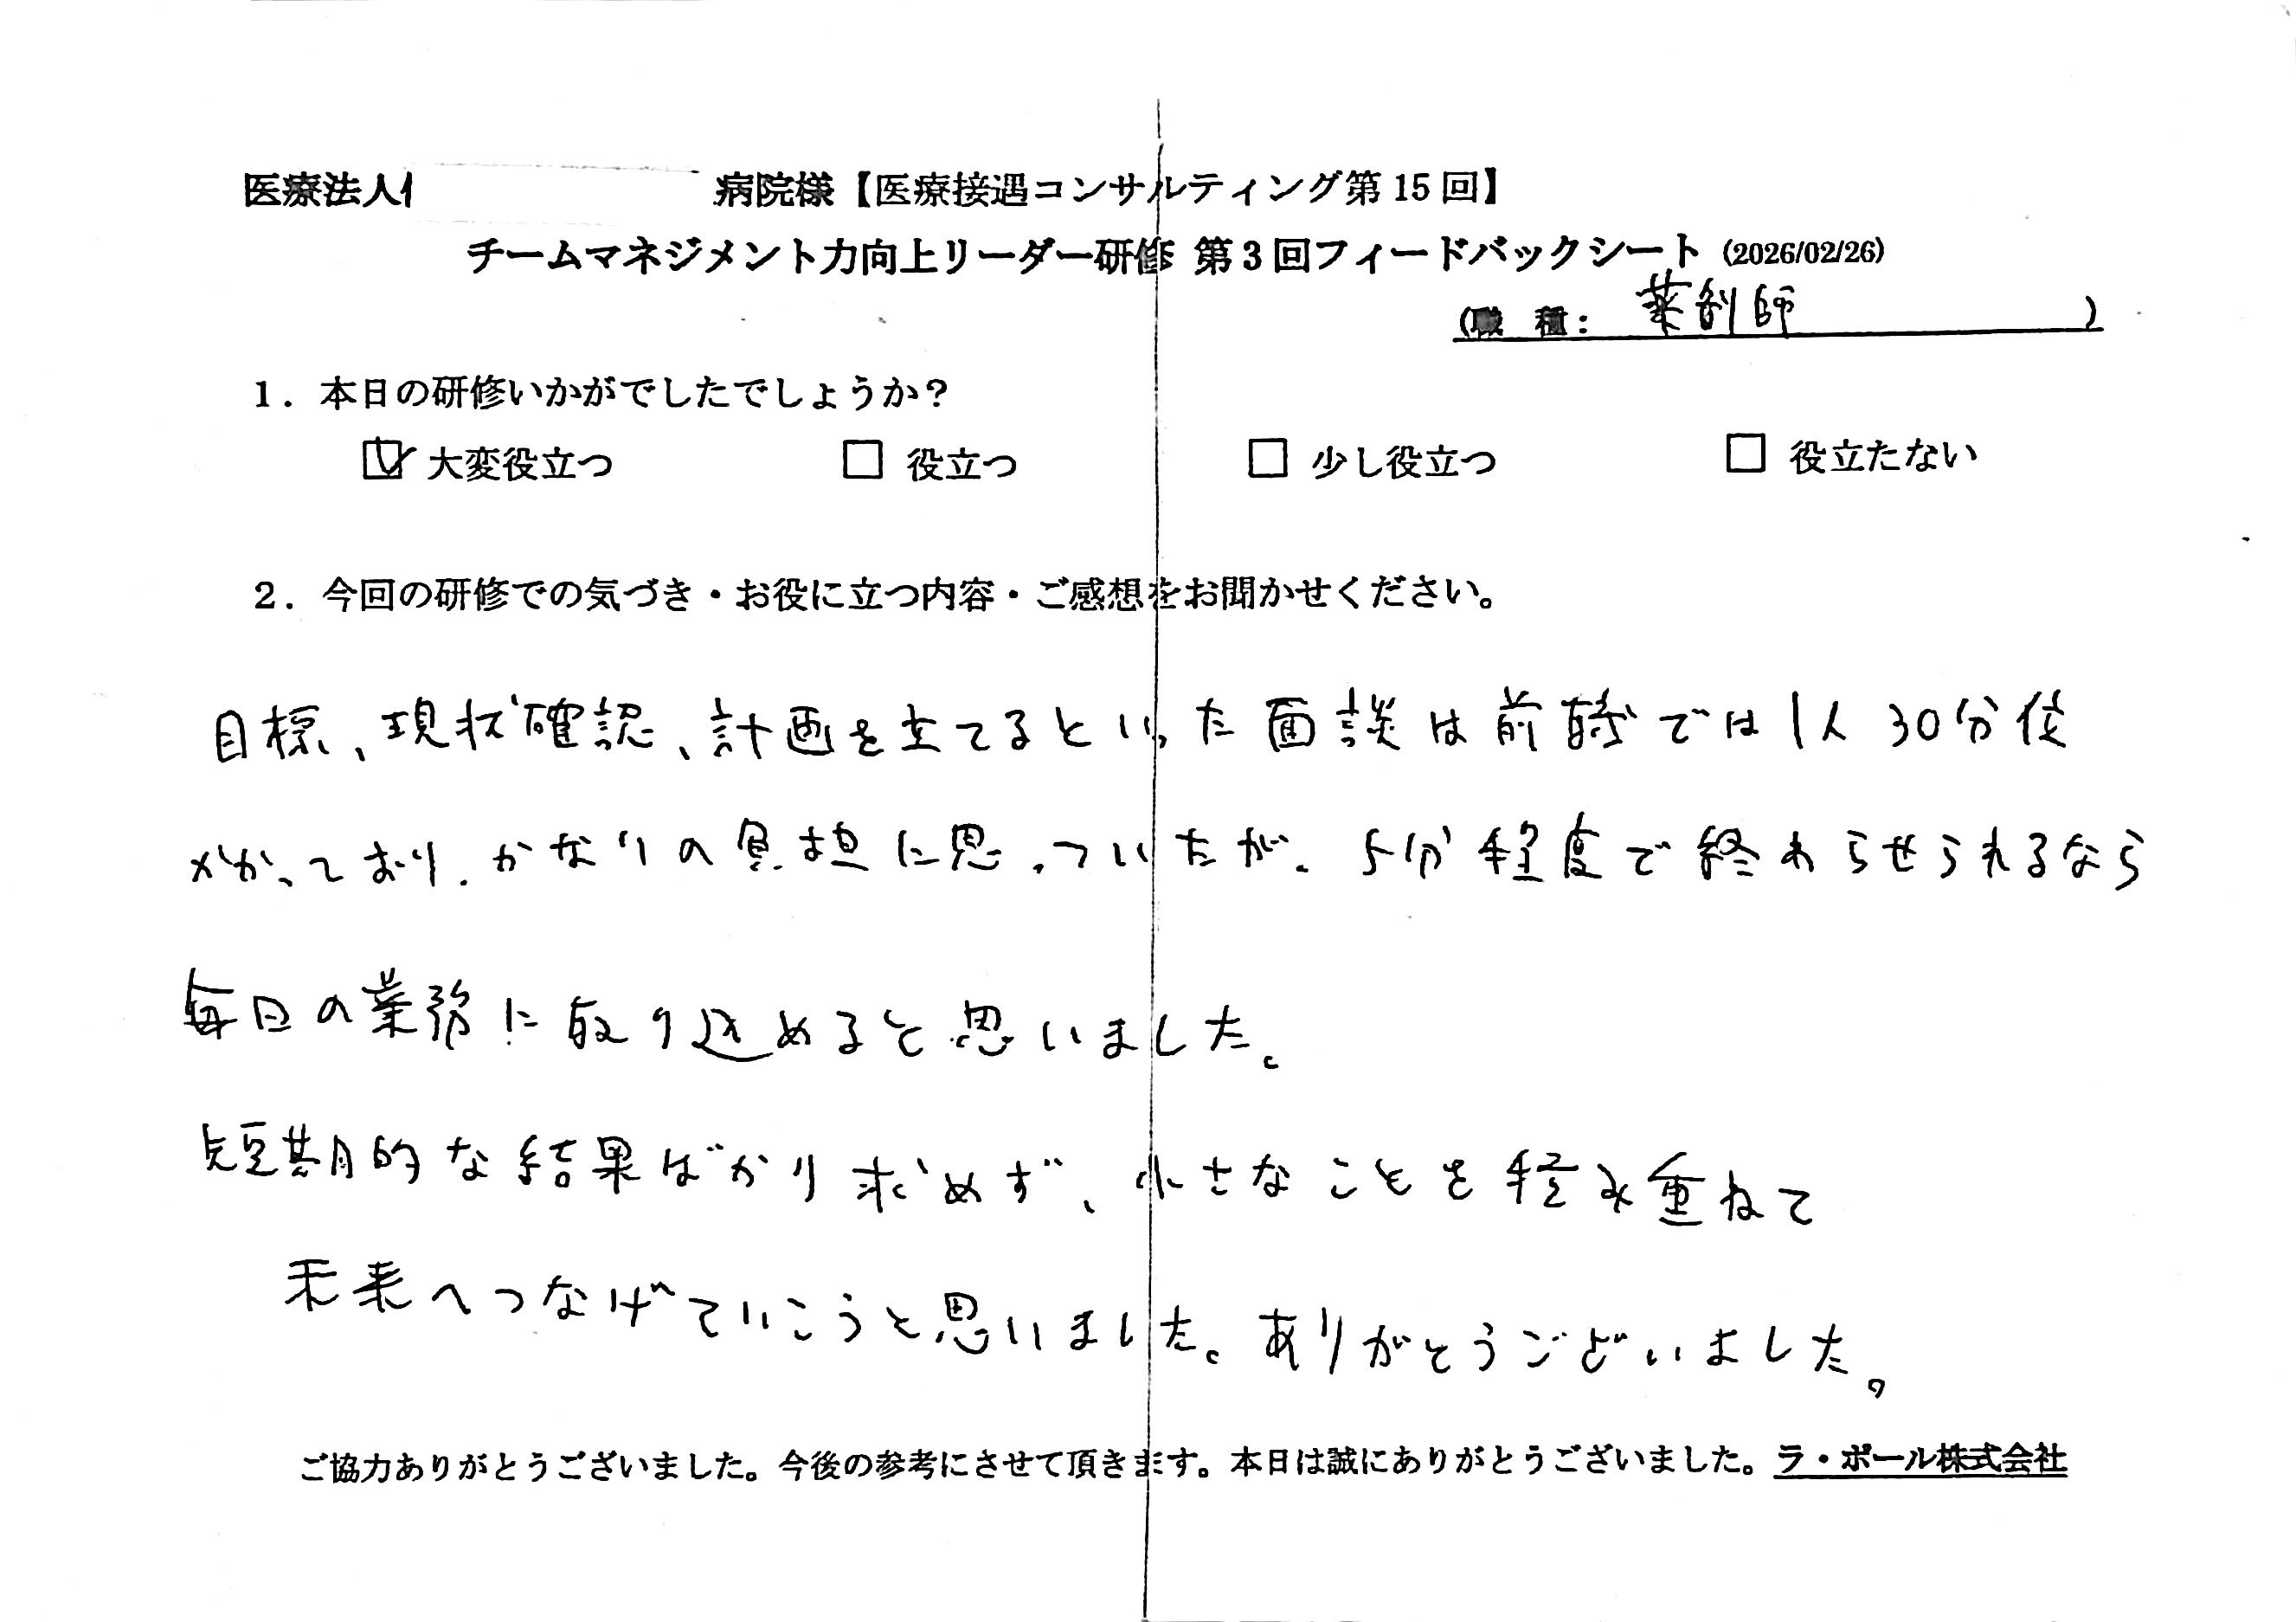 医療法人 病院様【医療接遇コンサルティング第15回】
チームマネジメント力向上リーダー研修 第3回フィードバックシート (2026/02/26)
(職 種: 薬剤師 )
1. 本日の研修いかがでしたでしょうか?
☑ 大変役立つ □ 役立つ □ 少し役立つ □ 役立たない
2. 今回の研修での気づき・お役に立つ内容・ご感想をお聞かせください。
目標、現状確認、計画を立てるといった面談は前職では1人30分位
かかっており、かなりの負担に思っていたが、5分程度で終わらせられるなら
毎日の業務に取り込めると思いました。
短期的な結果ばかり求めず、小さなことを積み重ねて
未来へつなげていこうと思いました。ありがとうございました。
ご協力ありがとうございました。今後の参考にさせて頂きます。本日は誠にありがとうございました。ラ・ポール株式会社